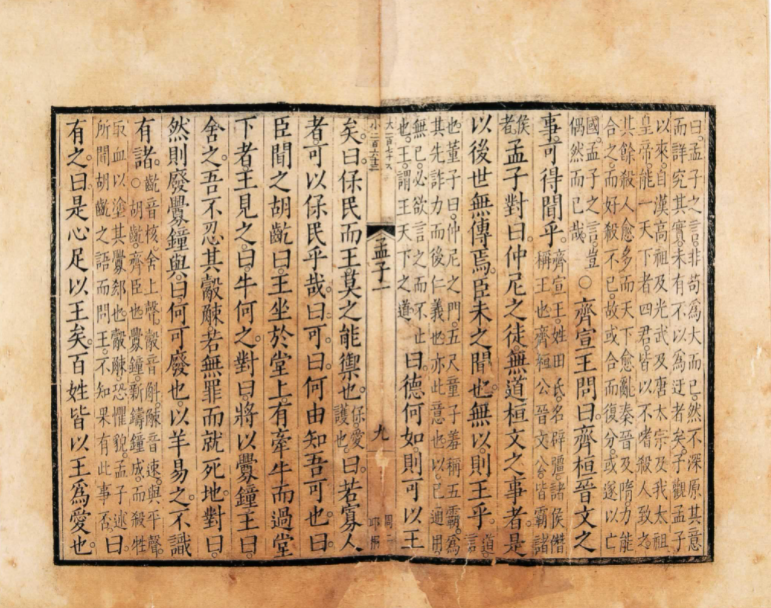 曰。孟子之言非苟爲大而已。然不深原其意
而詳究其實未有不以爲迂者矣。予觀孟子
以來。自漢高祖及光武及唐太宗及我太祖
皇帝能一天下者四君。皆以不嗜殺人致之
其餘殺人愈多而天下愈亂秦晉及隋力能
合之而好殺不已。故或合而復分。或遂以亡
國。孟子之言豈
偶然而已哉
○齊宣王問曰。齊桓晉文之
事。可得聞乎。
齊宣王姓田氏。名辟彊。諸侯僭
稱王也。齊桓公晉文公皆霸諸
侯者。
孟子對曰。仲尼之徒無道桓文之事者。是
以後世無傳焉。臣未之聞也。無以。則王乎。
道言
也。董子曰。仲尼之門。五尺童子羞稱五霸。爲
其先詐力而後仁義也。亦此意也。以已通用
無已。必欲言之而不止
也。王謂王天下之道
曰。德何如則可以王
孟子一
九
矣。曰。保民而王莫之能禦也。
保愛
護也。
曰。若寡人
者。可以保民乎哉。曰。可。曰。何由知吾可也。曰。
臣聞之胡齕曰。王坐於堂上。有牽牛而過堂
下者。王見之。曰。牛何之。對曰。將以釁鐘。王曰。
舍之。吾不忍其觳觫若無罪而就死地。對曰。
然則廢釁鐘與。曰。何可廢也。以羊易之。不識
有諸。
齕音核舍上聲觳音斛觫音速。與平聲。
○胡齕齊臣也釁鐘新鑄鐘成。而殺牲
取血以塗其釁郄也觳觫恐懼貌。孟子述
所聞胡齕之語而問王。不知果有此事否。
曰
有之。曰。是心足以王矣。百姓皆以王爲愛也。